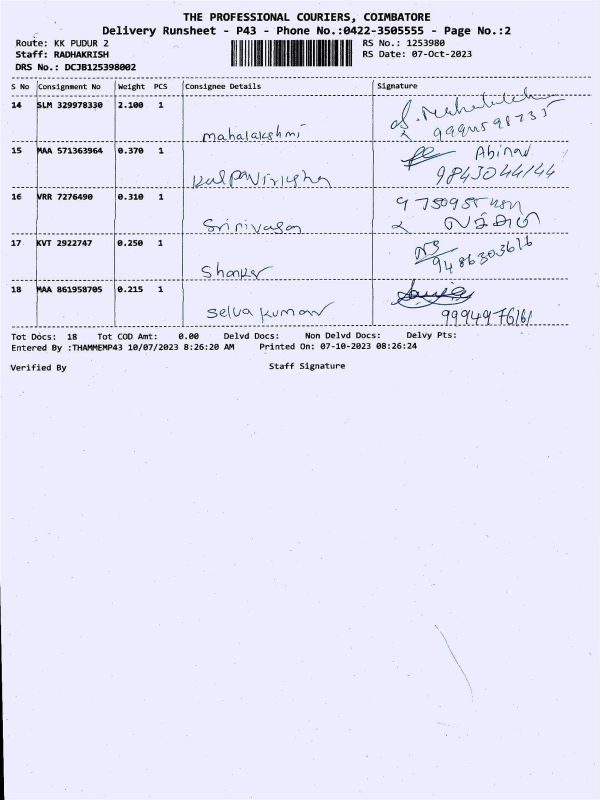 THE PROFESSIONAL COURIERS, COIMBATORE
Delivery Runsheet - P43 - Phone No.:0422-3505555 - Page No.:2
Route: KK PUDUR 2 RS No.: 1253980
Staff: RADHAKRISH RS Date: 07-Oct-2023
DRS No.: DCJB125398002
S No Consignment No Weight PCS Consignee Details Signature
14 SLM 329978330 2.100 1
mahalakshmi
15 MAA 571363964 0.370 1 Abinav
9843044144
16 VRR 7276490 0.310 1
Srinivasan
17 KVT 2922747 0.250 1
Shanker 9486303616
18 MAA 861958705 0.215 1
Selva kumar 9994976161
Tot Docs: 18 Tot COD Amt: 0.00 Delvd Docs: Non Delvd Docs: Delvy Pts:
Entered By :THAMMEMP43 10/07/2023 8:26:20 AM Printed On: 07-10-2023 08:26:24
Verified By Staff Signature